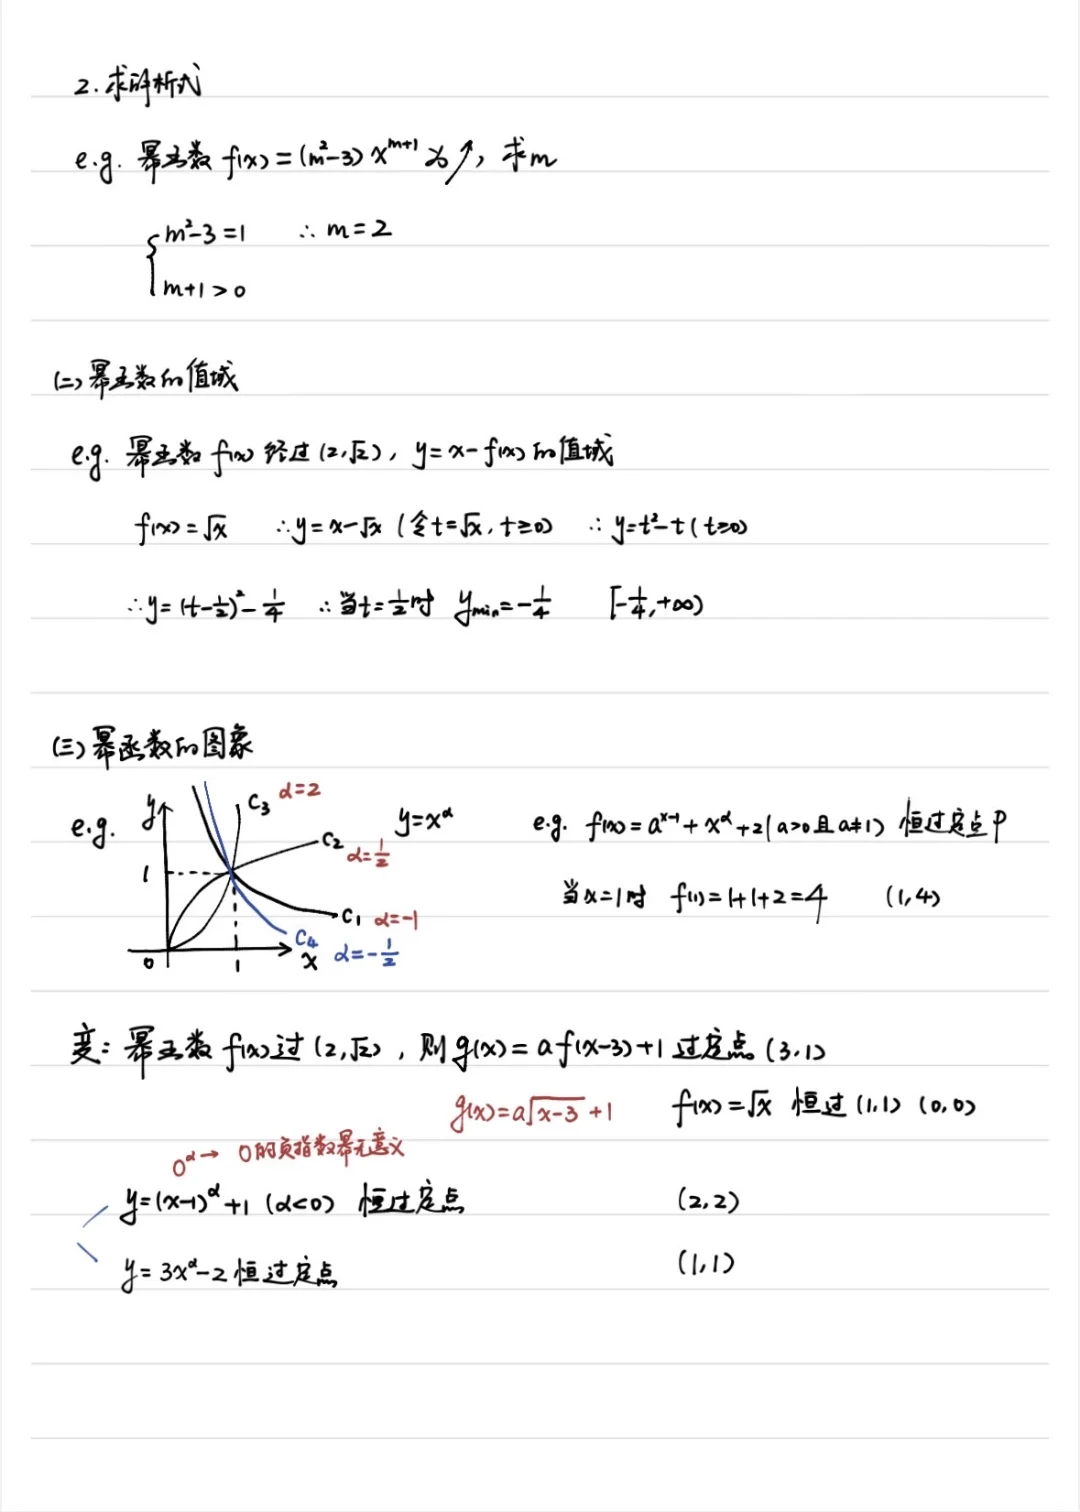 2. 求解析式
e.g. 幂函数 f(x) = (m²-3) x^{m+1} 为↗, 求m
{ m²-3=1 ∴ m=2
m+1>0
(二) 幂函数的值域
e.g. 幂函数 f(x) 经过 (2,√2), y=x-f(x) 的值域
f(x)=√x ∴y=x-√x (令t=√x, t≥0) ∴ y=t²-t (t≥0)
∴y=(t-1/2)²-1/4 ∴当t=1/2时 y_min=-1/4 [-1/4,+∞)
(三) 幂函数的图象
e.g. y 1 0 1 x
C₃ α=2
C₂ α=1/2
C₁ α=-1
C₄ α=-1/2
y=x^α
e.g. f(x)=a^{x-1}+x^α+2(a>0且a≠1) 恒过定点P
当x=1时 f(1)=1+1+2=4 (1,4)
变: 幂函数 f(x)过 (2,√2), 则g(x)=af(x-3)+1 过定点 (3,1)
g(x)=a√(x-3)+1 f(x)=√x 恒过 (1,1) (0,0)
0^α → 0的负指数幂无意义
y=(x-1)^α+1 (α<0) 恒过定点 (2,2)
y=3x^α-2 恒过定点 (1,1)